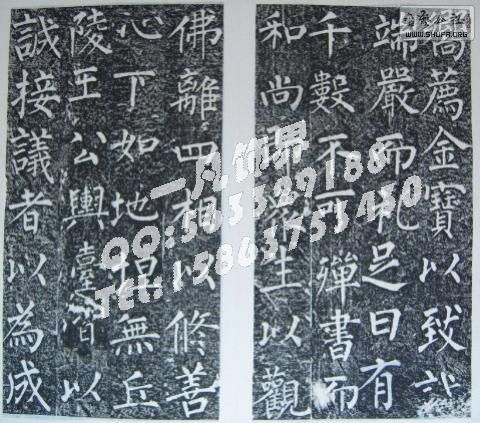 薦金寶以致誠
端嚴而礼足日有
千數不可殫書而
和尚即眾生以觀
佛離四相以修善
心下如地坦無丘
陵王公輿臺皆以
誠接議者以為成
一凡饰界
WWW.SHUFA.ORG